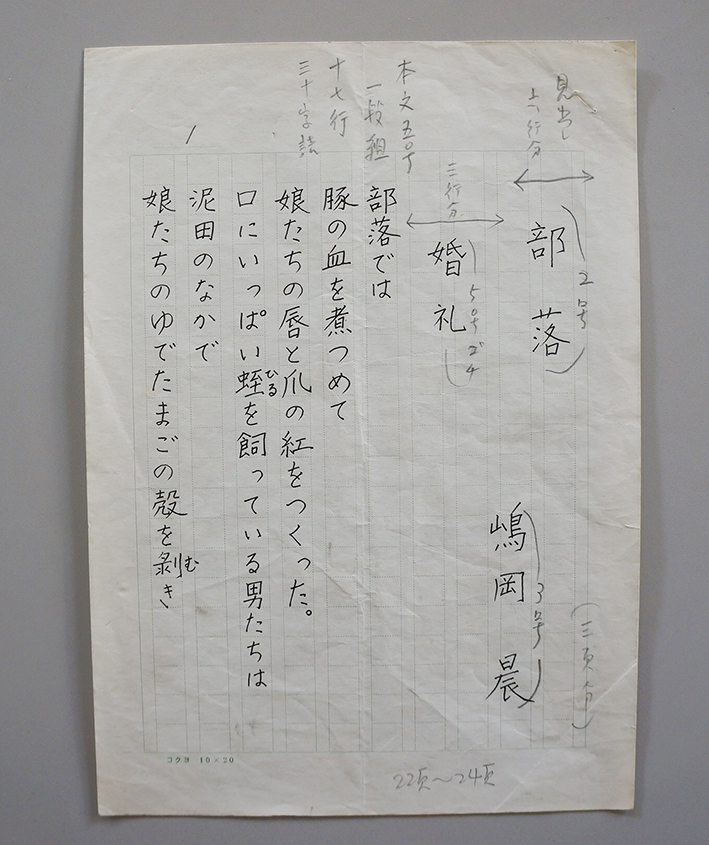 見出し
六行分
部落
2号
嶋岡晨
3号
(三頁分)
三行分
婚礼
5号ゴチ
本文五号
一段組
十七行
三十字詰
部落では
豚の血を煮つめて
娘たちの唇と爪の紅をつくった。
口にいっぱい蛭を飼っている男たちは
ひる
泥田のなかで
娘たちのゆでたまごの殻を剥き
む
22頁〜24頁
コクヨ 10×20